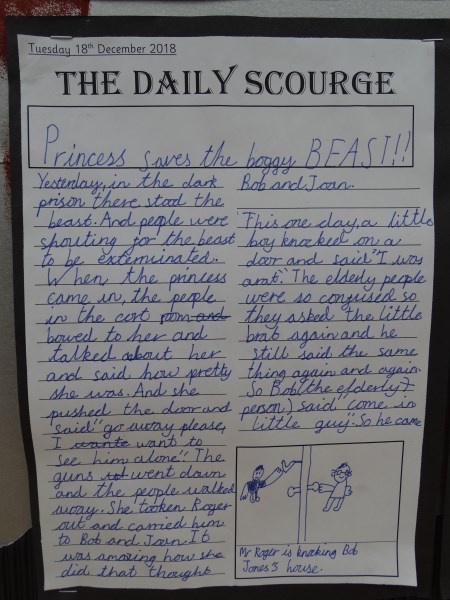 Tuesday 18th December 2018
THE DAILY SCOURGE
Princess saves the boggy BEAST!!
Yesterday, in the dark
prison there stood the
beast. And people were
shouting for the beast
to be exterminated.
When the princess
came in, the people
in the cort rom and
bowed to her and
talked about her
and said how pretty
she was. And she
pushed the door and
said" go away please,
I wante want to
see him alone". The
guns went down
and the people walked
away. She tooken Roger
out and carried him
to Bob and Joan. It
was amazing how she
did that thought
Bob and Joan.
This one day, a little
boy knocked on a
door and said "I was
arat." The elderly people
were so confused so
they asked the little
brat again and he
still said the same
thing again and again.
So Bob (the elderly
person) said "come in
little guy. So he came
Mr Roger is knocking Bob
Jones's house.